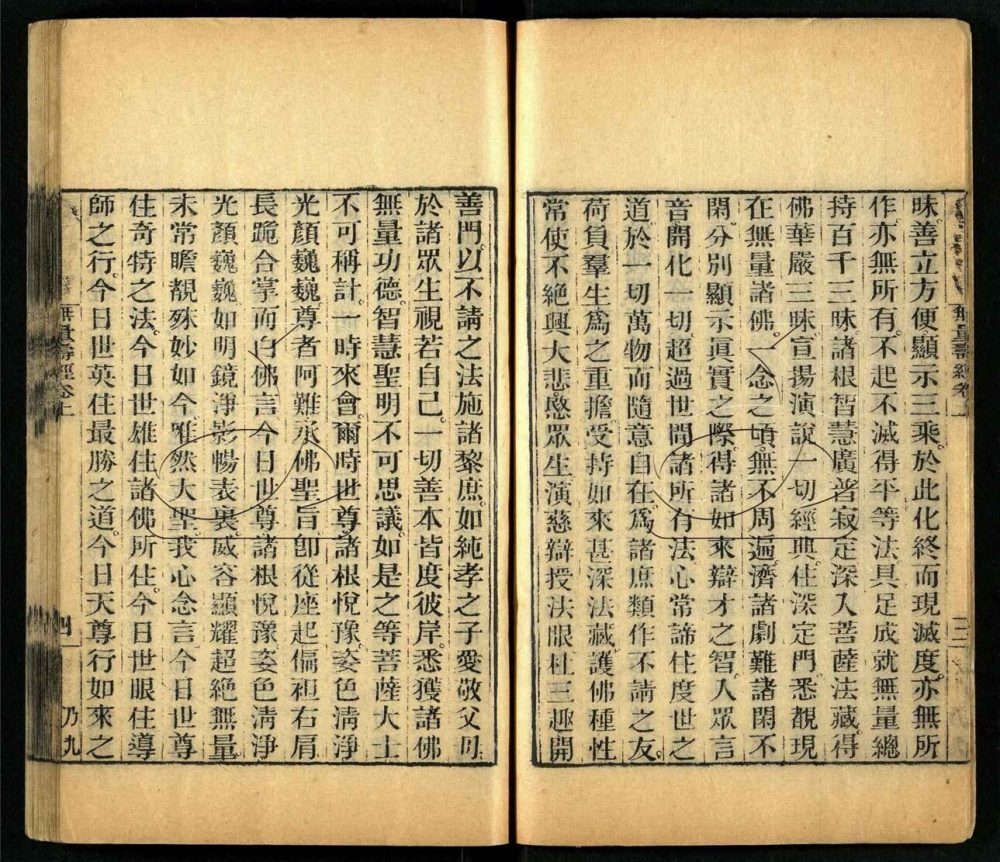 無量壽經卷上
三
昧。善立方便顯示三乘。於此化終而現滅度。亦無所
作。亦無所有。不起不滅得平等法。具足成就無量總
持百千三昧。諸根智慧廣普寂定。深入菩薩法藏。得
佛華嚴三昧。宣揚演說一切經典。住深定門。悉覩現
在無量諸佛。一念之頃。無不周遍。濟諸劇難諸閑不
閑。分別顯示眞實之際。得諸如來辯才之智。入眾言
音開化一切。超過世間諸所有法。心常諦住度世之
道。於一切萬物而隨意自在。爲諸庶類作不請之友。
荷負羣生爲之重擔。受持如來甚深法藏。護佛種性
常使不絕。興大悲愍眾生。演慈辯授法眼。杜三趣開
善門。以不請之法施諸黎庶。如純孝之子愛敬父母。
於諸眾生視若自己。一切善本皆度彼岸。悉獲諸佛
無量功德。智慧聖明不可思議。如是之等菩薩大士
不可稱計。一時來會。爾時世尊諸根悅豫。姿色清淨
光顏巍巍。尊者阿難承佛聖旨。卽從座起偏袒右肩
長跪合掌而白佛言。今日世尊諸根悅豫姿色清淨
光顏巍巍。如明鏡淨影暢表裏。威容顯耀超絕無量
未常瞻覩殊妙如今。唯然大聖。我心念言。今日世尊
住奇特之法。今日世雄住諸佛所住。今日世眼住導
師之行。今日世英住最勝之道。今日天尊行如來之
無量壽經卷上
四
乃九